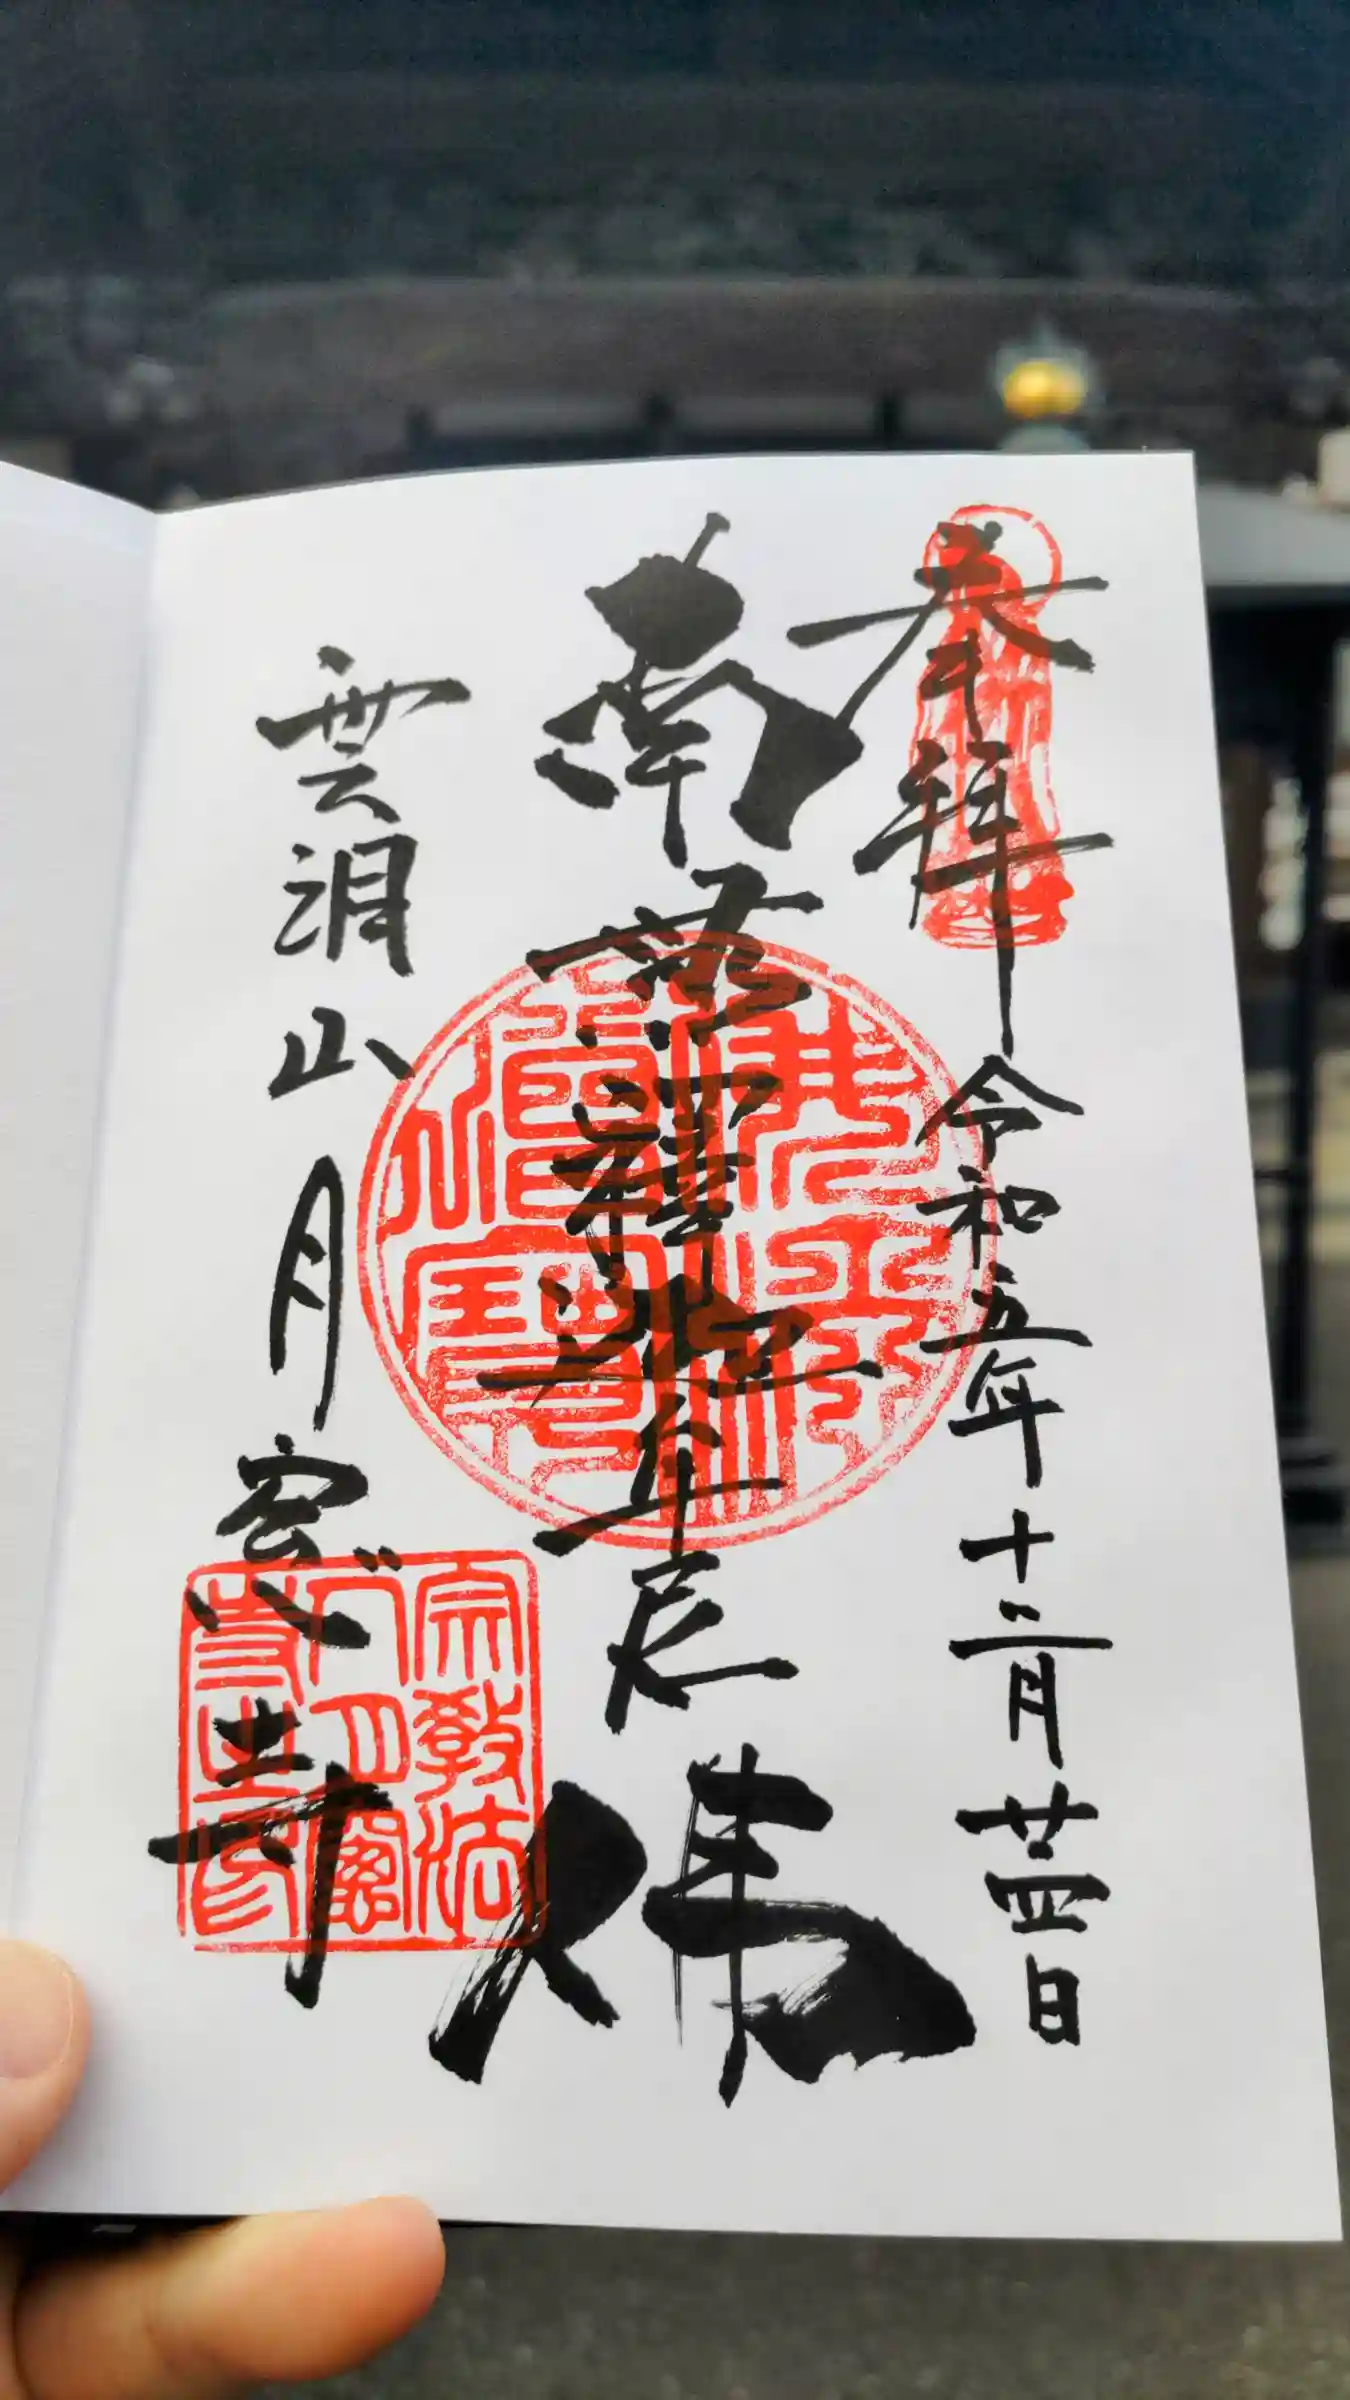 奉拝
令和五年十二月廿四日
南無釋迦牟尼佛
雲涓山
月窓寺
佛法僧寶
宗教法人月窓寺之印